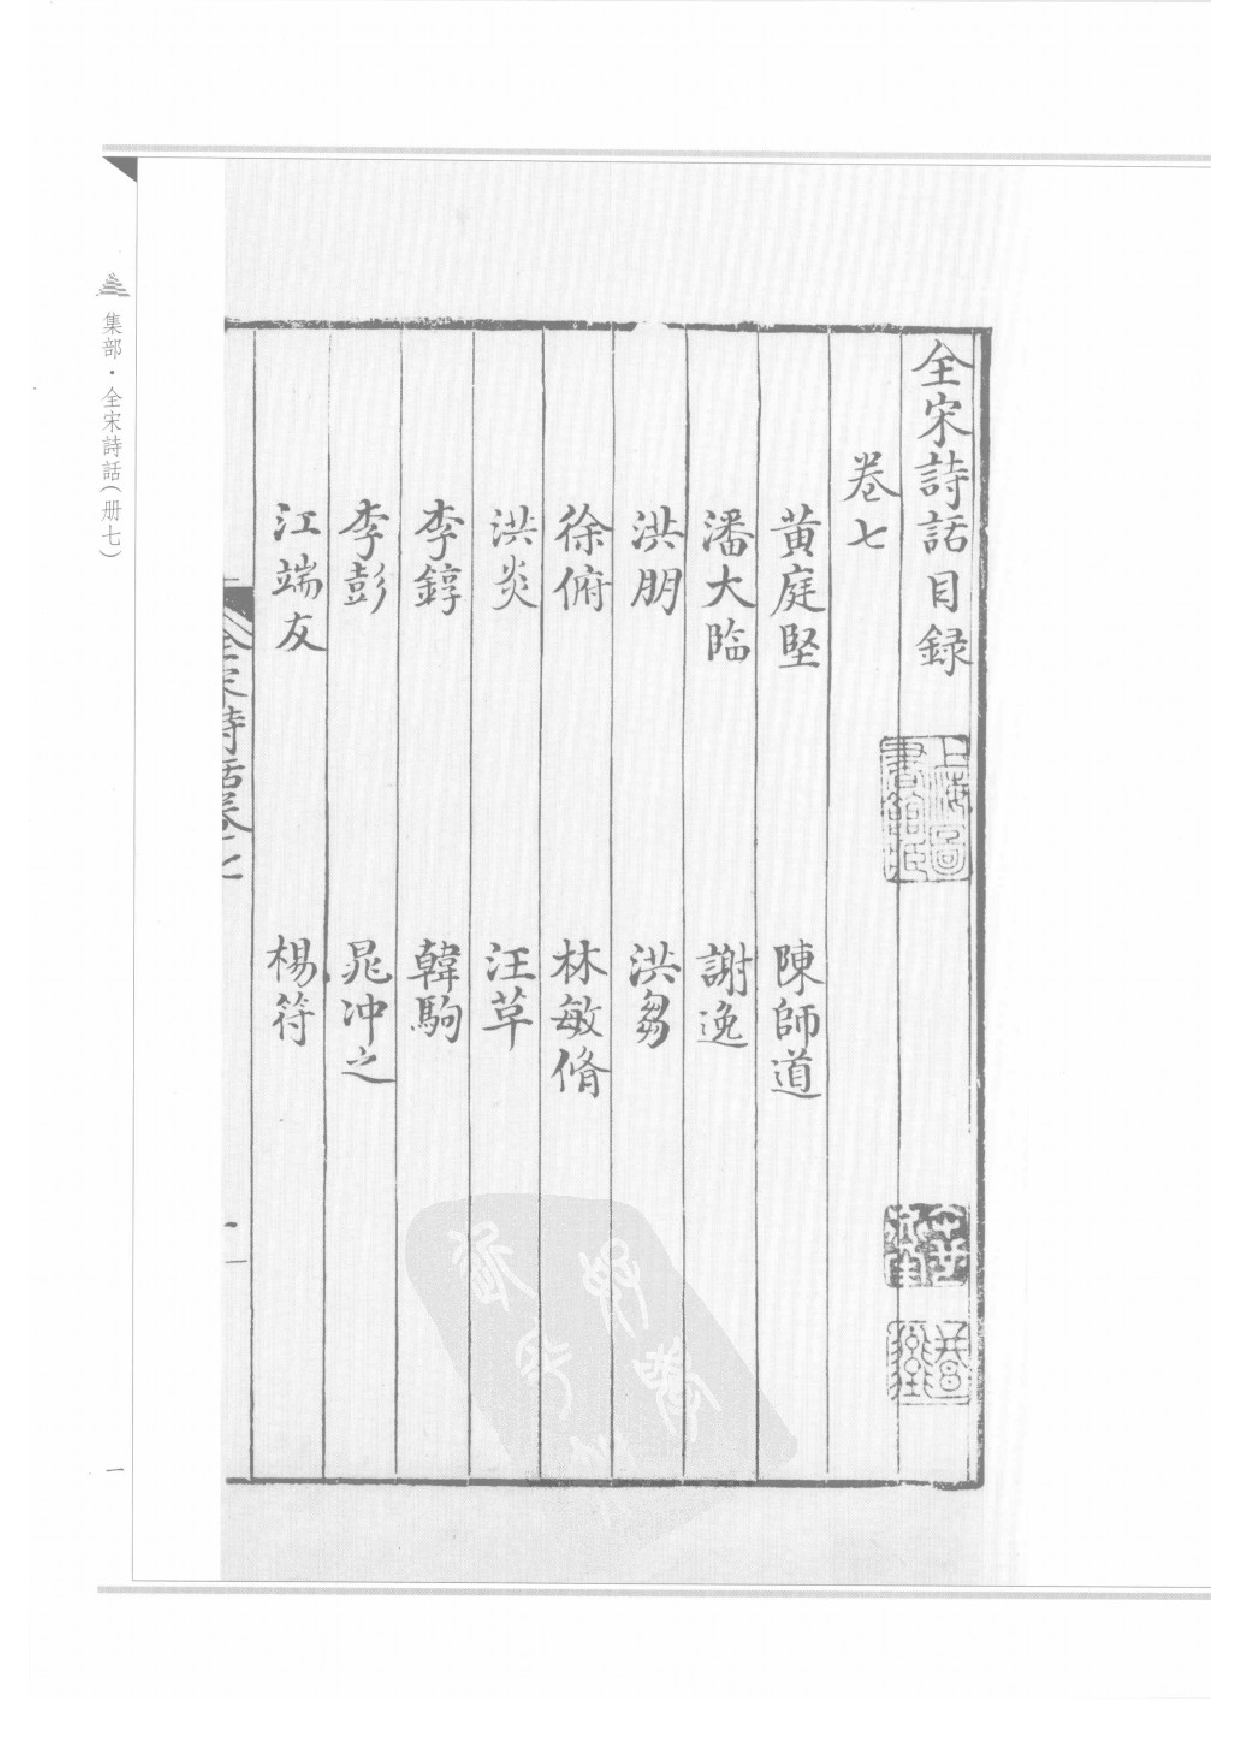 全宋詩話目録
卷七
黄庭堅　陳師道
潘大臨　謝逸
洪朋　洪芻
徐俯　林敏脩
洪炎　汪革
李錞　韓駒
李彭　晁冲之
江端友　楊符
全宋詩話卷七
一
上海圖書館藏
集部・全宋詩話(册七)
一